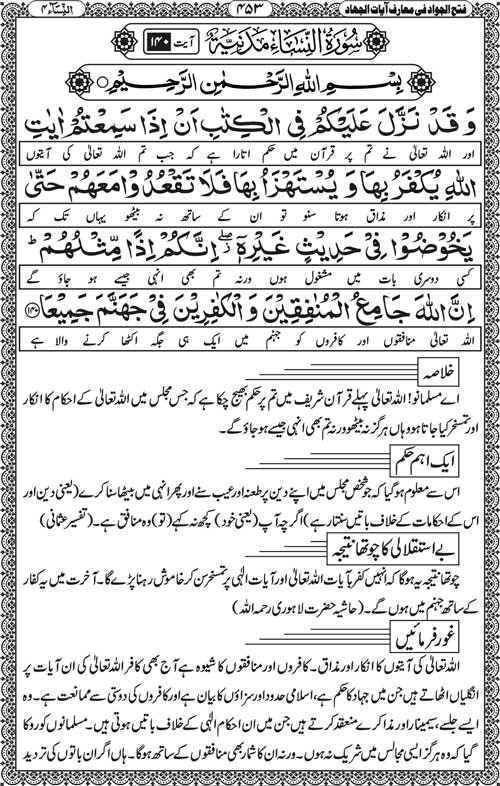 فتح الجواد فی معارف آیات الجہاد
۴۵۳
النِّسَآء ۴
سُوْرَةُ النِّسَآءِ مَدَنِيَّةٌ
آیت ۱۴۰
بِسْمِ اللهِ الرَّحْمٰنِ الرَّحِيْمِ
وَ قَدْ نَزَّلَ عَلَيْكُمْ فِى الْكِتٰبِ اَنْ اِذَا سَمِعْتُمْ اٰيٰتِ
اور اللہ تعالیٰ نے تم پر قرآن میں حکم اتارا ہے کہ جب تم اللہ تعالیٰ کی آیتوں
اللهِ يُكْفَرُ بِهَا وَ يُسْتَهْزَاُ بِهَا فَلَا تَقْعُدُوْا مَعَهُمْ حَتّٰى
پر انکار اور مذاق ہوتا سنو تو ان کے ساتھ نہ بیٹھو یہاں تک کہ
يَخُوْضُوْا فِىْ حَدِيْثٍ غَيْرِهٖۤ ۖ اِنَّكُمْ اِذًا مِّثْلُهُمْ ؕ
کسی دوسری بات میں مشغول ہوں ورنہ تم بھی انہی جیسے ہو جاؤ گے
اِنَّ اللهَ جَامِعُ الْمُنٰفِقِيْنَ وَ الْكٰفِرِيْنَ فِىْ جَهَنَّمَ جَمِيْعًا ﴿۱۴۰﴾
اللہ تعالیٰ منافقوں اور کافروں کو جہنم میں ایک ہی جگہ اکٹھا کرنے والا ہے
خلاصہ
اے مسلمانو! اللہ تعالیٰ پہلے قرآن شریف میں تم پر حکم بھیج چکا ہے کہ جس مجلس میں اللہ تعالیٰ کے احکام کا انکار
اور تمسخر کیا جاتا ہو وہاں ہرگز نہ بیٹھو ورنہ تم بھی انہی جیسے ہو جاؤ گے۔
ایک اہم حکم
اس سے معلوم ہو گیا کہ جو شخص مجلس میں اپنے دین پر طعنہ اور عیب سنے اور پھر انہی میں بیٹھا سنا کرے (یعنی دین اور
اس کے احکامات کے خلاف باتیں سنتا رہے) اگرچہ آپ (یعنی خود) کچھ نہ کہے (تو) وہ منافق ہے۔ (تفسیر عثمانی)
بے استقلالی کا چوتھا نتیجہ
چوتھا نتیجہ یہ ہوگا کہ انہیں کفر بآیات اللہ تعالیٰ اور آیات الٰہی پر تمسخر سن کر خاموش رہنا پڑے گا۔ آخرت میں یہ کفار
کے ساتھ جہنم میں ہوں گے۔ (حاشیہ حضرت لاہوری رحمہ اللہ)
غور فرمائیں
اللہ تعالیٰ کی آیتوں کا انکار اور مذاق۔ کافروں اور منافقوں کا شیوہ ہے آج بھی کافر اللہ تعالیٰ کی ان آیات پر
انگلیاں اٹھاتے ہیں جن میں جہاد کا حکم ہے، اسلامی حدود اور سزاؤں کا بیان ہے اور کافروں کی دوستی سے ممانعت ہے۔ وہ
ایسے جلسے، سیمینار اور مذاکرے منعقد کرتے ہیں جن میں ان احکام الٰہی کے خلاف باتیں ہوتی ہیں۔ مسلمانوں کو روکا
گیا کہ وہ ہرگز ایسی مجالس میں شریک نہ ہوں۔ ورنہ ان کا شمار بھی منافقوں کے ساتھ ہوگا۔ ہاں اگر ان باتوں کی تردید